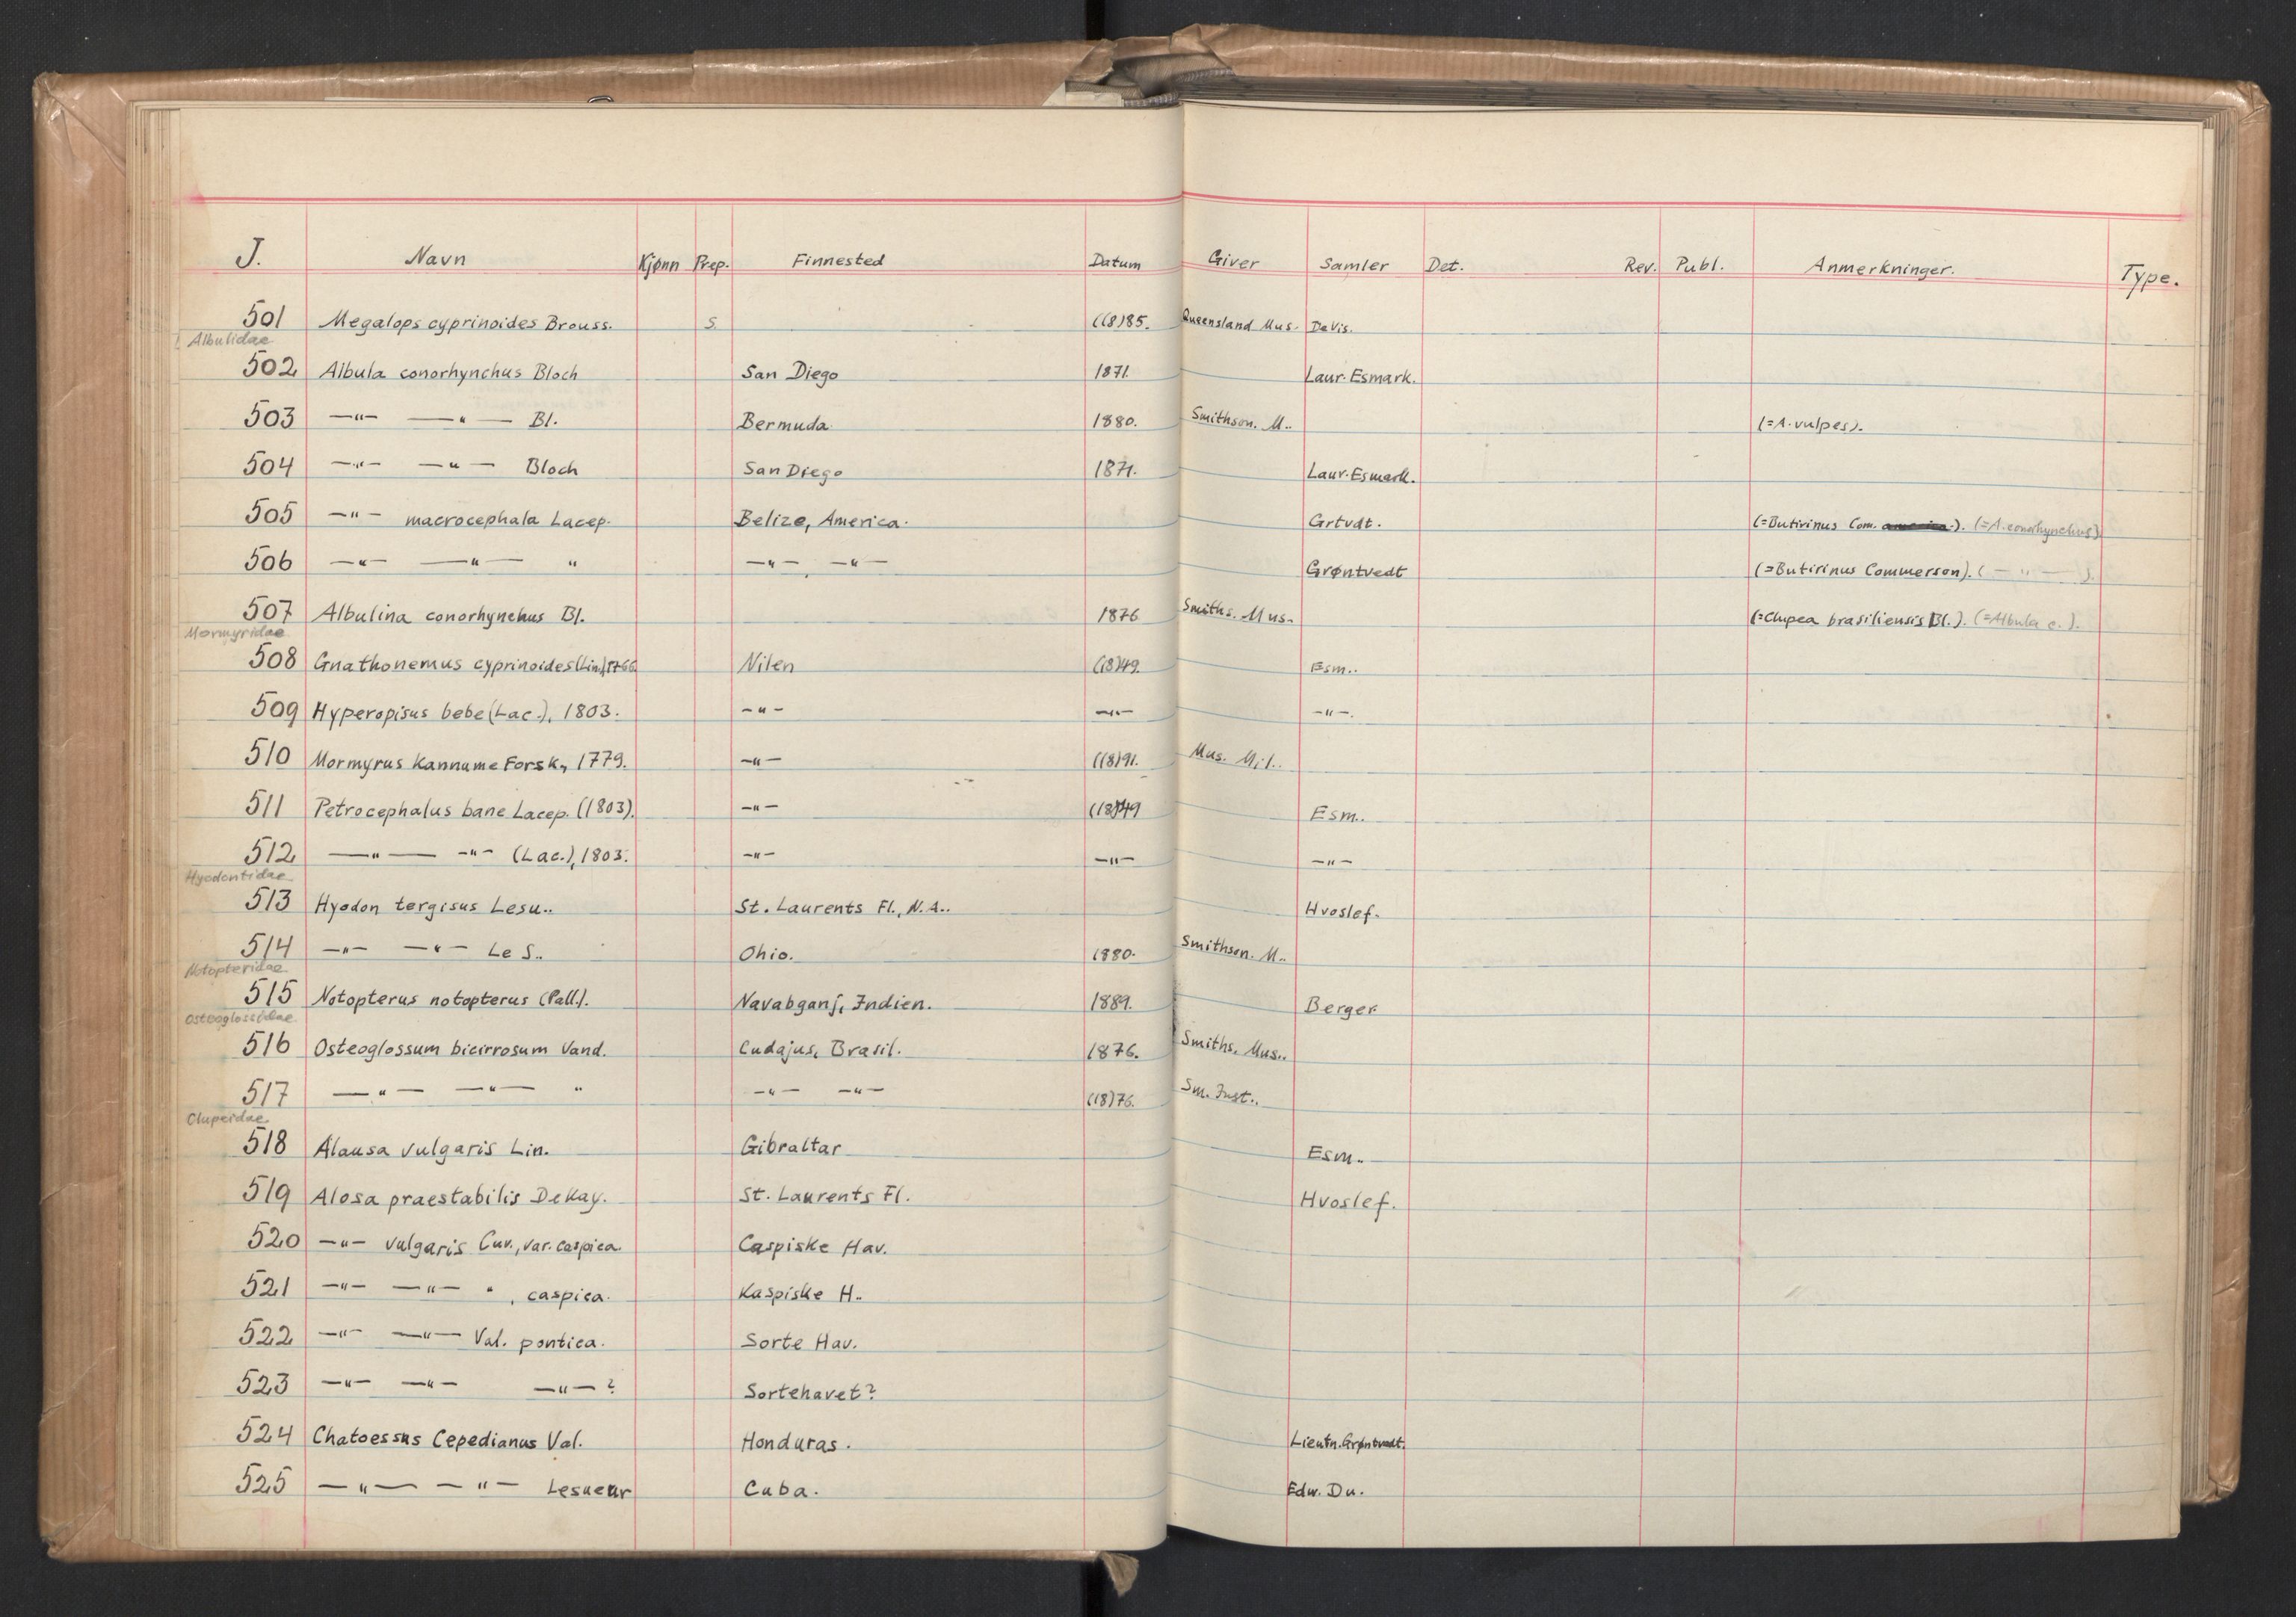 J. Navn Kjønn Prep. Finnested Datum Giver Samler Det. Rev. Publ. Anmerkninger. Type.
501 Megalops cyprinoides Brouss. S. ((8)85. Queensland Mus. De Vis.
Albulidae
502 Albula conorhynchus Bloch San Diego 1871. Laur. Esmark.
503 —"— —"— Bl. Bermuda 1880. Smithson. M.. (=A. vulpes).
504 —"— —"— Bloch San Diego 1871. Laur. Esmark.
505 —"— macrocephala Lacep. Belize, America. Grtvdt. (=Butirinus Com. america.). (=A. conorhynchus)
506 —"— —"— " —"— —"— Grøntvedt (=Butirinus Commerson). (— " —).
507 Albulina conorhynchus Bl. 1876 Smiths. Mus. (=Clupea brasiliensis Bl.). (=Albula c.).
Mormyridae
508 Gnathonemus cyprinoides (Lin.) 1766. Nilen (18)49. Esm..
509 Hyperopisus bebe (Lac.), 1803. —"— —"— —"—.
510 Mormyrus Kannume Forsk., 1779. —"— ((8)91. Mus. Mil..
511 Petrocephalus bane Lacep. (1803). —"— (18)49 Esm..
512 —"— —"— (Lac.), 1803. —"— —"— —"—
Hyodontidae
513 Hyodon tergisus Lesu.. St. Laurents Fl., N.A.. Hvoslef.
514 —"— —"— Le S.. Ohio. 1880. Smithson. M..
Notopteridae
515 Notopterus notopterus (Pall.). Navabganj, Indien. 1889. Berger.
Osteoglossidae
516 Osteoglossum bicirrosum Vand. Cudajus, Brasil. 1876. Smiths. Mus..
517 —"— —"— " —"— —"— (18)76. Sm. Inst..
Clupeidae
518 Alausa vulgaris Lin. Gibraltar Esm..
519 Alosa praestabilis DeKay. St. Laurents Fl. Hvoslef.
520 —"— vulgaris Cuv., var. caspica. Caspiske Hav.
521 —"— —"— ", caspica. Kaspiske H..
522 —"— —"— Val. pontica. Sorte Hav.
523 —"— —"— —"— ? Sortehavet?
524 Chatoessus Cepedianus Val. Honduras. Lieutn. Grøntvedt.
525 —"— —"— Lesueur Cuba. Edw. Du.